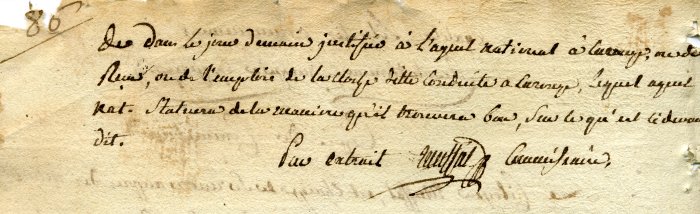 86
de dans le jour demain justifier à l'agent national à Carouge, ou de
, ou de l'emplois de la cloche ditte conduite a Carouge, lequel agent
nat. Statuera de la maniere qu'il trouvera bon, Sur le qu'est ci devan
dit.
Par extrait Commissaire,